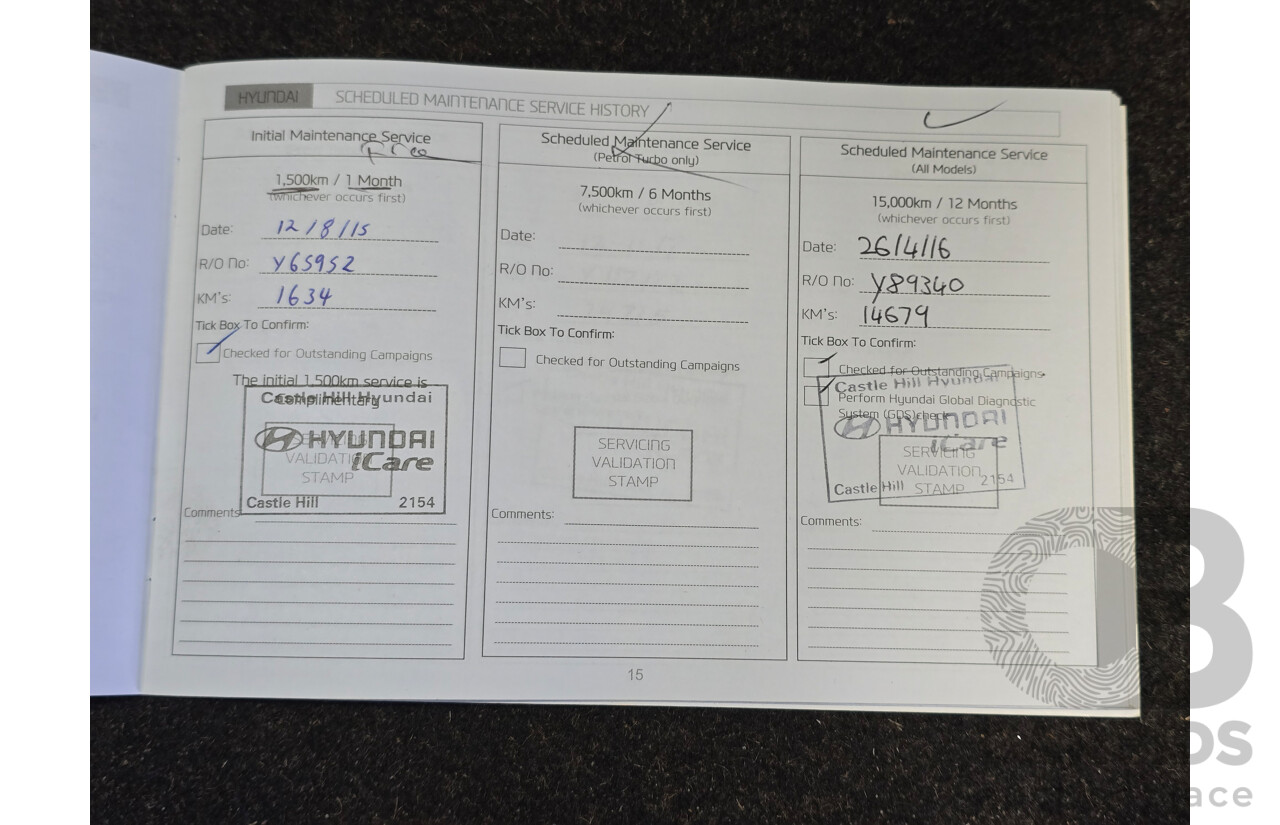 HYUNDAI SCHEDULED MAINTENANCE SERVICE HISTORY
Initial Maintenance Service
Free
1,500km / 1 Month
(whichever occurs first)
Date: 12/8/15
R/O No: Y65952
KM's: 1634
Tick Box To Confirm:
Checked for Outstanding Campaigns
The initial 1,500km service is
Complimentary
Castle Hill Hyundai
HYUNDAI
iCare
SERVICING
VALIDATION
STAMP
Castle Hill 2154
Comments:
Scheduled Maintenance Service
(Petrol Turbo only)
7,500km / 6 Months
(whichever occurs first)
Date:
R/O No:
KM's:
Tick Box To Confirm:
Checked for Outstanding Campaigns
SERVICING
VALIDATION
STAMP
Comments:
Scheduled Maintenance Service
(All Models)
15,000km / 12 Months
(whichever occurs first)
Date: 26/4/16
R/O No: Y89340
KM's: 14679
Tick Box To Confirm:
Checked for Outstanding Campaigns
Perform Hyundai Global Diagnostic
System (GDS) check
Castle Hill Hyundai
HYUNDAI
iCare
SERVICING
VALIDATION
STAMP
Castle Hill 2154
Comments:
15